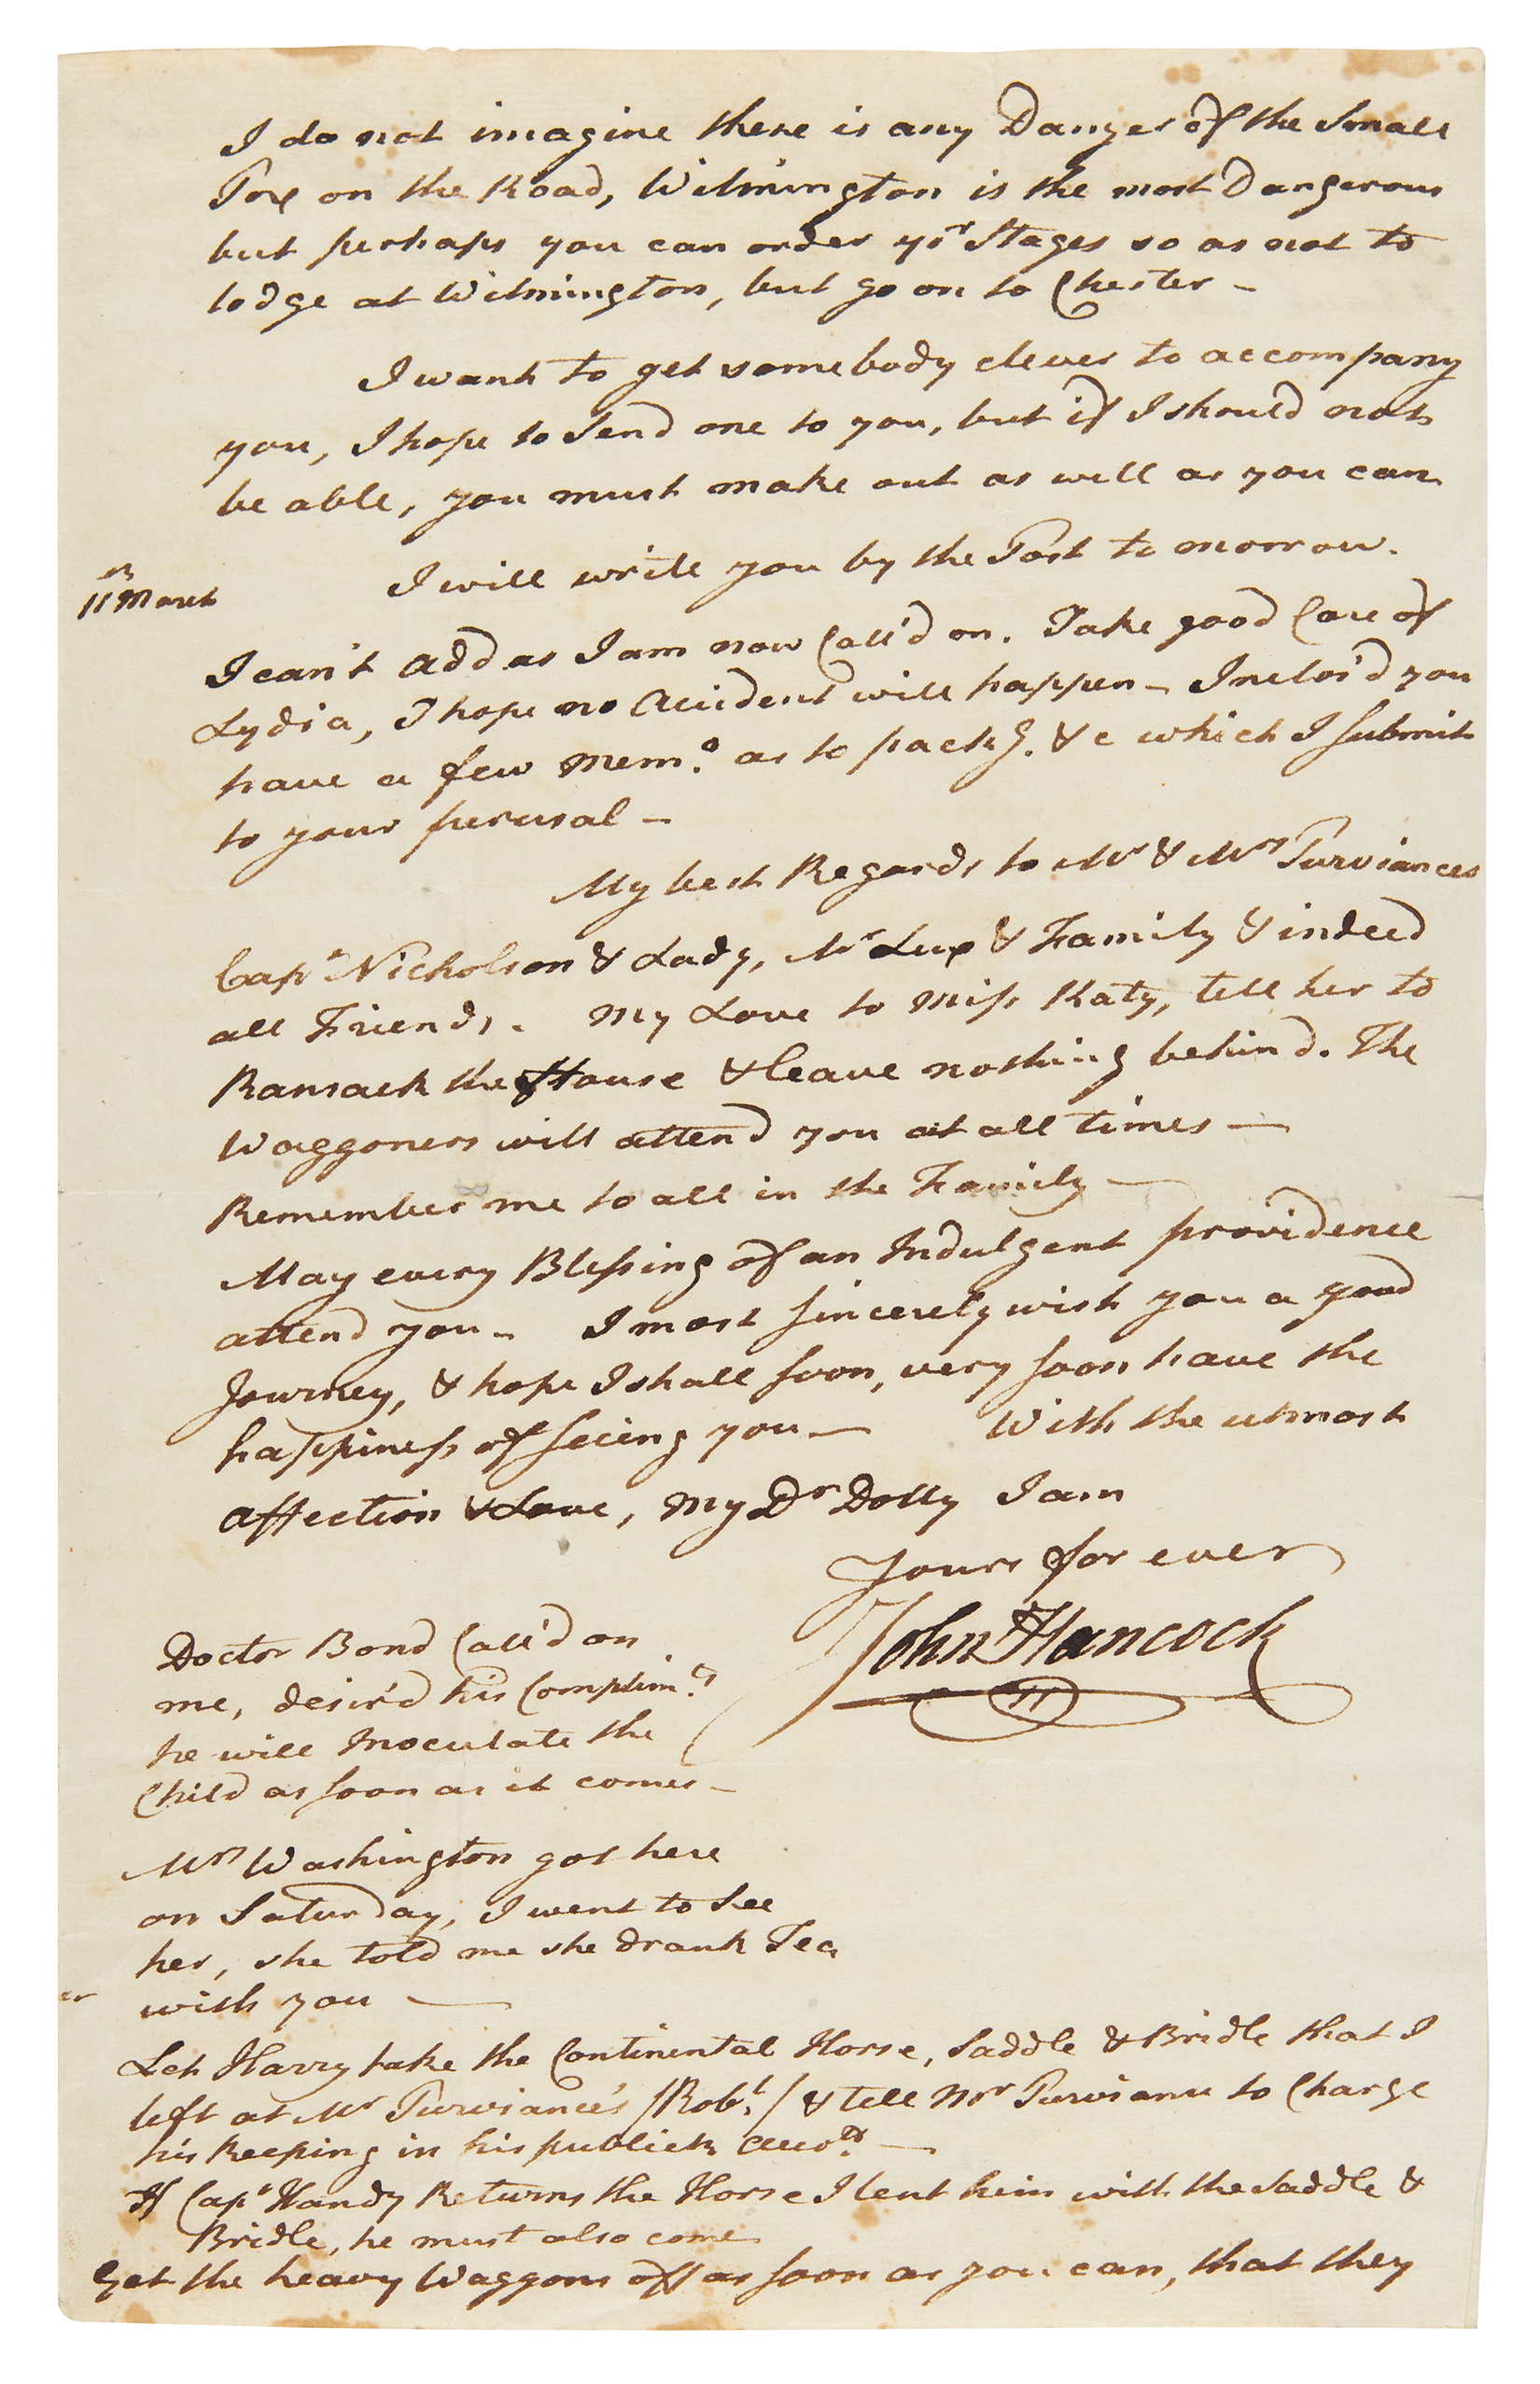 I do not imagine there is any Danger of the Small
Pox on the Road, Wilmington is the most Dangerous
but perhaps you can order yor Stages so as not to
lodge at Wilmington, but go on to Chester –
I want to get somebody clever to accompany
you, I hope to Send one to you, but if I should not
be able, you must make out as well as you can
I will write you by the Post to morrow.
11 March
I can't add as I am now Call'd on. Take good Care of
Lydia, I hope no Accident will happen – Inclos'd you
have a few Memo. as to packg. &c which I submit
to your perusal –
My best Regards to Mr & Mrs Purviances
Capt Nicholson & Lady, Mr Lux & Family & indeed
all Friends. My Love to Miss Katy, tell her to
Ransack the House & leave nothing behind. The
Waggoners will attend you at all times —
Remember me to all in the Family —
May every Blessing of an Indulgent providence
attend you – I most sincerely wish you a good
Journey, & hope I shall soon, very soon have the
happiness of seeing you — With the utmost
affection & Love, My Dr Dolly I am
Yours for ever
John Hancock
Doctor Bond Call'd on
me, desir'd his Complimts.
he will Inoculate the
Child as soon as it comes –
Mrs Washington got here
on Saturday, I went to See
her, she told me she drank Tea
with you —
Let Harry take the Continental Horse, Saddle & Bridle that I
left at Mr Purviance's /Robt./ & tell Mr Purviance to Charge
his keeping in his publick Accots. —
If Capt Handy Returns the Horse I lent him with the Saddle &
Bridle, he must also come
Get the heavy Waggons off as soon as you can, that they